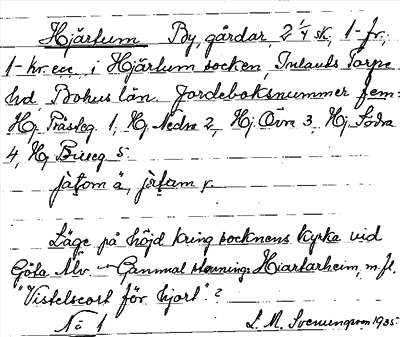 Hjärtum By, gårdar, 2 1/4 sk, 1-fr,
1-kr. ecc, i Hjärtum socken, Inlands Torpe
hd Bohus län. Jordeboksnummer fem:
Hj. Prästeg. 1, Hj Nedra 2, Hj. Övre 3, Hj. Södra
4, Hj
jàtom à, jàtam
Läge på höjd kring socknens kyrka vid
Göta Älv. - Gammal skrivning: Hiartarheim, m.fl.
"Vistelseort för hjort"?
No 1 S. M. Svenungsson 1935.